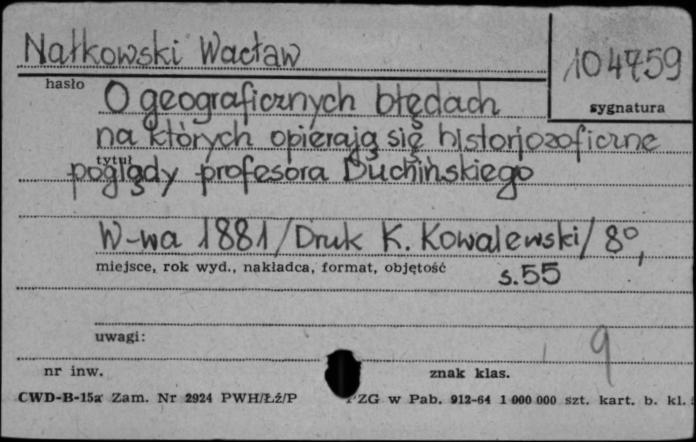 Nałkowski Wacław
104759
hasło
sygnatura
O geograficznych błędach
na których opierają się historjozoficzne
tytuł
poglądy profesora Duchińskiego
W-wa 1881/Druk K. Kowalewski/ 8º,
miejsce, rok wyd., nakładca, format, objętość
s.55
uwagi:
9
nr inw.
znak klas.
CWD-B-15a Zam. Nr 2924 PWH/Łź/P
PZG w Pab. 912-64 1 000 000 szt. kart. b. kl.